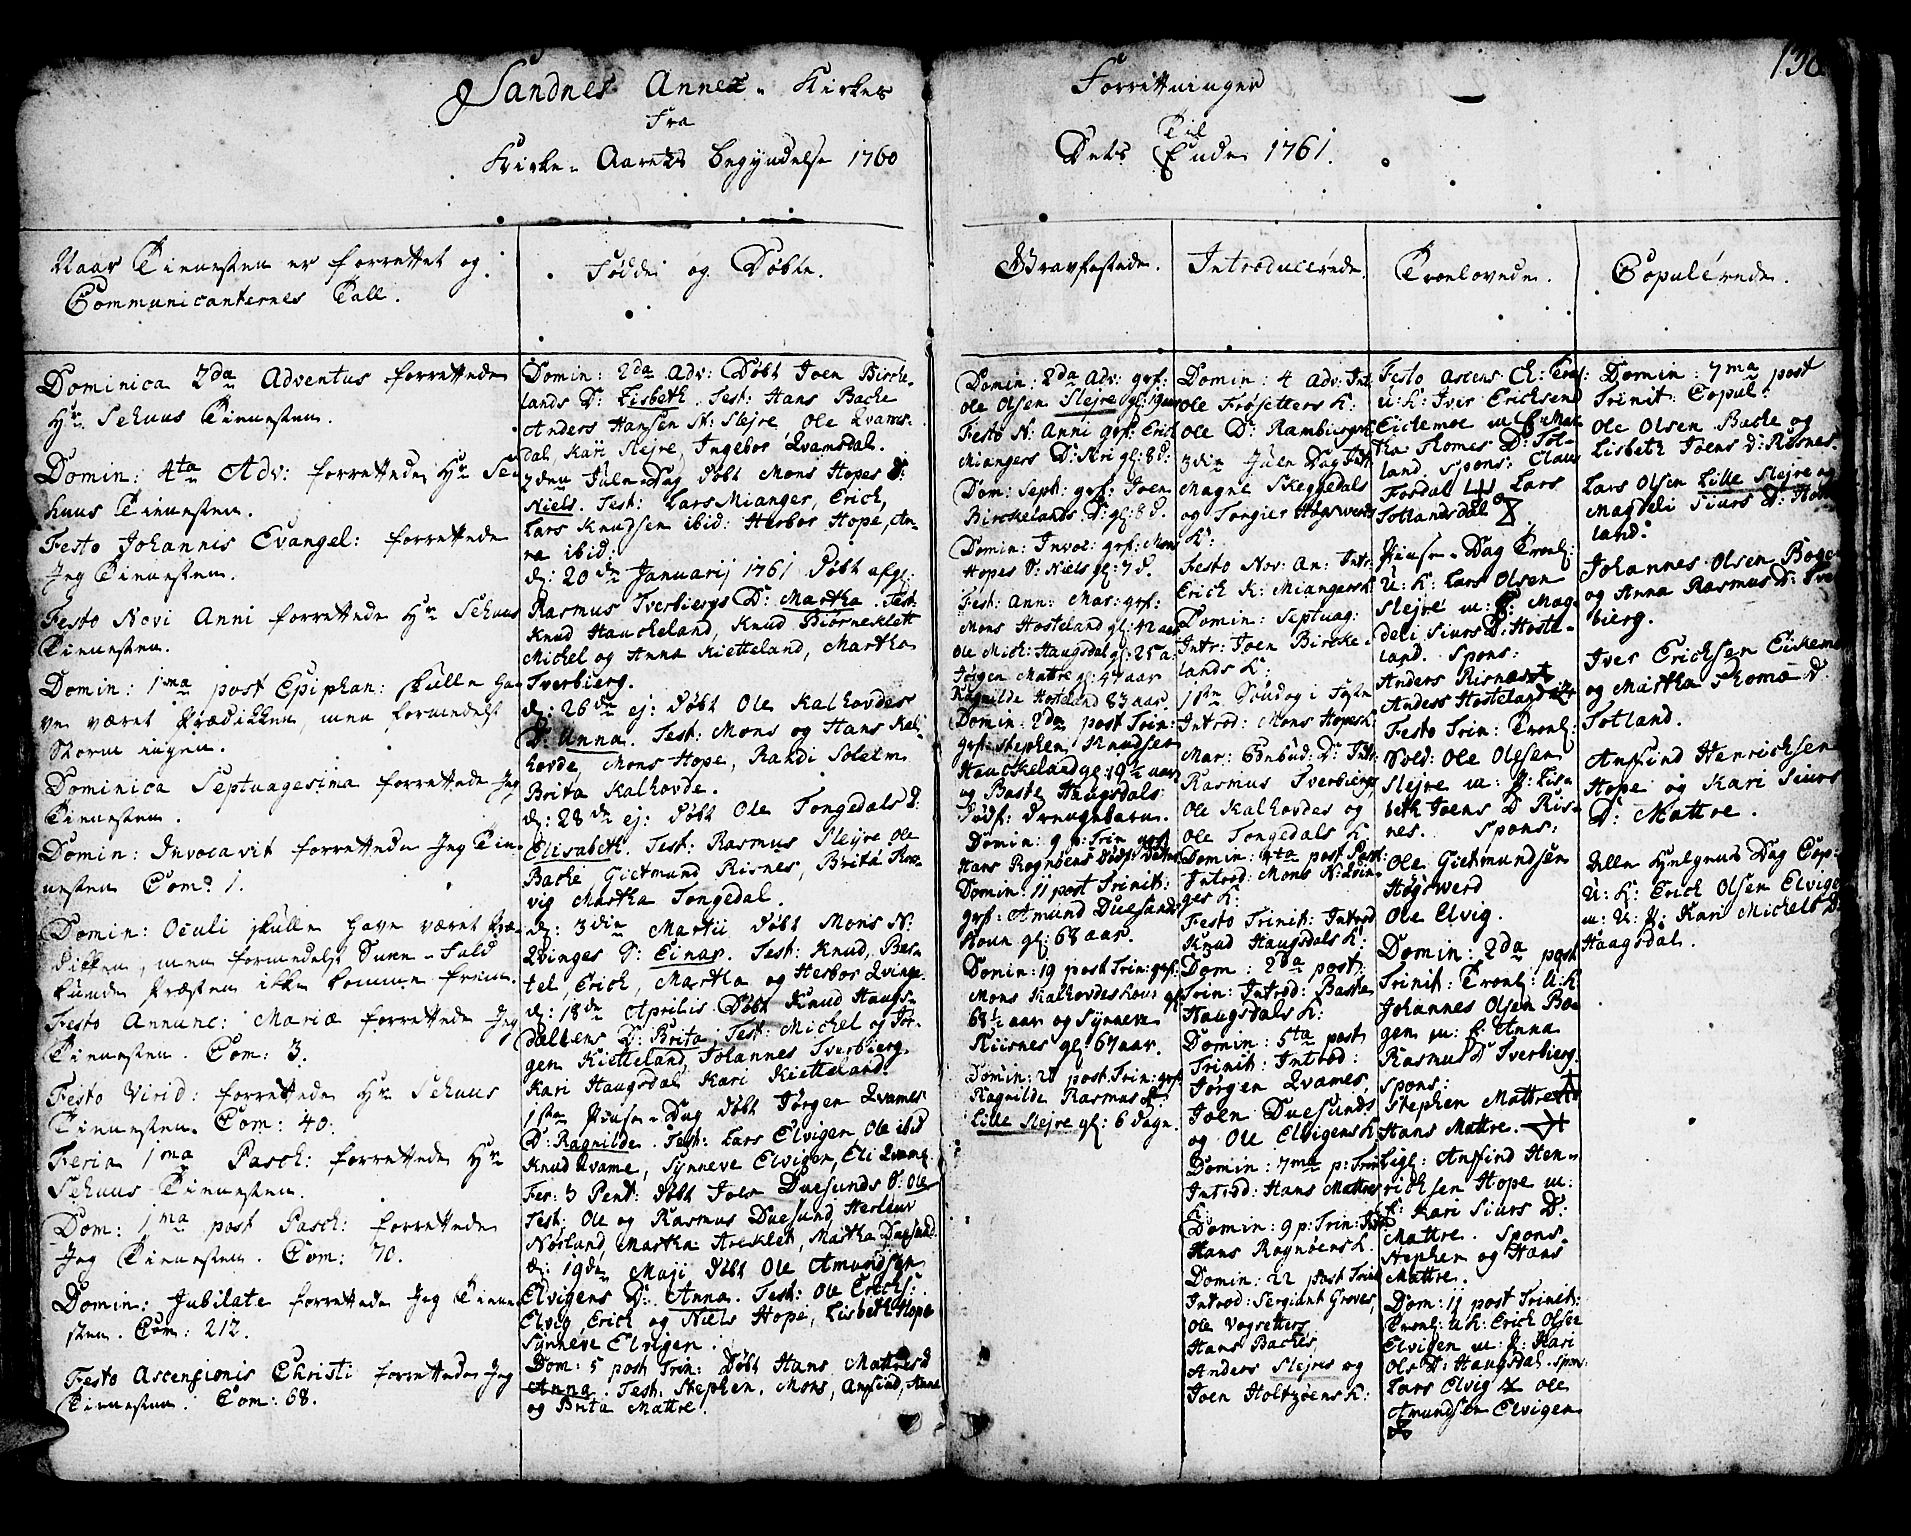 138
Sandnes Annex-Kirkes Forrettninger
Fra Til
Kirke-Aarets begyndelse 1760 Dets Ende 1761.
Naar Tienesten er forrettet og
Communicanternes Tall.
Dominica 2da Adventus forrettede
Hr. Schuus Tienesten.
Domin: 4ta Adv: forrettede Hr Sc
huus Tienesten.
Festo Johannes Evangel: forrettede
Jeg Tienesten.
Festo Novi Anni forrettede Hr Schuus
Tienesten.
Domin: 1ma post Epiphan: skulle ha-
ve været Prædikken, men formedelst
Storm ingen.
Dominica Septuagesima forrettede Jeg
Tienesten.
Domin: Invocavit forrettede Jeg Tie-
nesten Com: 1.
Domin: Oculi skulle have været Præ-
dikken, men formedelst Snee-Fald
kunde Præsten ikke komme frem.
Festo Annunc: Mariæ forrettede Jeg
Tienesten. Com: 3.
Festo Virid: forrettede Hr Schuus
Tienesten. Com: 40.
Feria 1ma Pasch: forrettede Hr
Schuus Tienesten.
Dom: 1ma post Pasch: forrettede
Jeg Tienesten. Com: 70.
Domin: Jubilate forrettede Jeg Tiene
sten. Com: 212.
Festo Ascensionis Christi forrettede Jeg
Tienesten. Com: 68.
Fødde og Døbte.
Domin: 2da Adv: Døbt Joen Bircke-
lands D: Lisbeth. Test: Hans Backe
Anders Hansen N: Slejre, Ole Qvams-
dal Kari Slejre, Ingebor Qvamsdal.
2den Jule-Dag døbt Mons Hopes S:
Niels. Test: Lars Mianger, Erich,
Lars Knudsen ibid: Herbor Hope, An-
na ibid:
d: 20de Januarij 1761 Døbt afg:
Rasmus Tverbiergs D: Martha. Test:
Knud Hauckeland, Knud Biørneklett
Michel og Anna Kietteland, Martha
Tverbierg.
d: 26de ej: Døbt Ole Kalhovdes
D: Anna. Test: Mons og Hans Kal-
hovde, Mons Hope, Randi Solelm
Brita Kalhovde.
d: 28de ej: døbt Ole Tongedals D:
Elisabeth. Test: Rasmus Slejre Ole
Backe Gietmund Risnes, Brita
vig Martha Tongedal.
d: 3die Martii døbt Mons N:
Qvinges S: Einar. Test: Knud, Bas-
tel, Erich, Martha og Herbor Qvinge.
d: 18de Aprilis Døbt Knud Haugs-
dallens D: Brita, Test: Michel og Jør-
gen Kietteland, Johannes Tverbierg.
Kari Haugsdal, Kari Kietteland.
1ste Pinse-Dag Døbt Jørgen Qvames
D: Ragnilde. Test: Lars Elvigen Ole ibid
Knud Qvame, Synneve Elvigen, Eli Qvame.
Fer: 3 Pent: døbt Joen Duesunds S: Ole
Test: Ole og Rasmus Duesund, Herleur
Norlund, Martha Areklet, Martha Duesund.
d: 19de Maji Døbt Ole Amundsen
Elvigens D: Anna. Test: Ole Erichs:
Elvig, Erich og Niels Hope, Lisbeth Hope
Synneve Elvigen.
Dom: 5 post Trin: Døbt Hans Mattres D
Anna. Test: Stephen, Mons, Anfind, Anna
og Brita Mattre.
Gravfæstede.
Domin: 2da Adv: grf:
Ole Olsen Slejre gl: 19 aar
Festo N: Anni grf: Erich
Miangers D: Siri gl: 8 d:
Dom: Sept: grf: Joen
Birckelands D: gl: 8 d.
Domin: Invoc: grf: Mons
Hopes S: Niels gl: 7 d.
Fest: Ann: Mar: grf:
Mons Hosteland gl: 42 aar
Ole Mich: Haugsdal gl: 25 a:
Jørgen Mattre gl: 47 aar
Ragnilde Hosteland 83 aar.
Domin: 2da post Trin:
grf: Stephen Knudsen
Hauckeland gl: 19½ aar
og Baste Haugsdals
Dødf: Drengebarn.
Domin: 9 p: Trin grf:
Hans Rognøens Dødf:
Domin: 11 post Trinit:
grf: Amund Duesunds
Koun gl: 68 aar.
Domin: 19 post Trin: grf:
Mons Kalhovdes Kou: gl
68½ aar og Synneve
Risnes gl: 67 aar.
Domin: 21 post Trin: grf
Ragnilde Rasmus D
Lille Slejre gl: 6 Dage.
Introducerede.
Domin: 4 Adv: Int
Ole Frøsetters K:
Ole D: Rambiergs K
3die Jule Dag Int
Magne Skeggedals
og Torgier Høgswerds
K:
Festo Nov: An: Intr
Erich K: Miangers K
Domin: Septuag:
Intr: Joen Bircke-
lands K:
1ste Søndag i Faste
Introd: Mons Hopes K:
Mar: Bønbud: D: Int:
Rasmus Tverbiergs
Ole Kalhovdes og
Ole Tongedals K:
Domin: 4ta post Pasc:
Introd: Mons N: Qvin-
ges K:
Festo Trinit: Introd
Knud Haugsdals K:
Dom: 2da post
Trin: Introd: Baste
Haugsdals K:
Domin: 5ta post
Trinit: Introd:
Jørgen Qvames,
Joen Duesunds
og Ole Elvigens K
Domin: 7ma p: Trin
Introd: Hans Mattres
K:
Domin: 9 p: Trin: Int
Hans Rognøens K.
Domin: 22 post Trin
Introd: Sergiant Groves,
Ole Vogsetters
Hans Backes,
Anders Slejres og
Joen Holtzøens K:
Troelovede.
Festo Ascens Ch: Troe:
U: K: Iver Erichsen
Eidemoe m P: Mar-
tha Thomes D: Tot-
land. Spons: Claus
Fosdal Lars
Totlandsdal
Pinse-Dag Troel:
U: K: Lars Olsen
Slejre m: P: Mag-
deli Siurs D: Hoste-
land. Spons:
Anders Risnes
Anders Hosteland
Festo Trin: Troel:
Sold: Ole Olesen
Slejre m: P: Lis-
beth Joens D Ris-
nes. Spons:
Ole Gietmundsen
Høgswerd
Ole Elvig.
Domin: 2da post
Trinit: Troel: U: K
Johannes Olsen Bo-
gen m: P: Anna
Rasmus D Tverbierg.
Spons:
Stephen Mattre
Hans Mattre.
Ligl: Anfind Hen-
richsen Hope m:
P: Kari Siurs D:
Mattre. Spons:
Stephen og Hans
Mattre.
Dom: 11 post Trinit:
Troel: U: K: Erich Olsen
Elvigen m: P: Kari
Ols D: Haugsdal. Spons:
Lars Elvig Ole
Amundsen Elvigen
Copulérede.
Domin: 7ma post
Trinit: Copul:
Ole Olsen Backe og
Lisbeth Joens D: Risnes
Lars Olsen Lille Slejre og
Magdeli Siurs D: Hoste
land.
Johannes Olsen Bogen
og Anna Rasmus D: Tver
bierg.
Iver Erichsen Eidemo
og Martha Thomæ D:
Totland.
Anfind Henrichsen
Hope og Kari Siurs
D: Mattre.
Alle Helgens Dag Cop:
U: K: Erich Olsen Elvigen
m: U: P: Kari Michels D
Haagsdal.